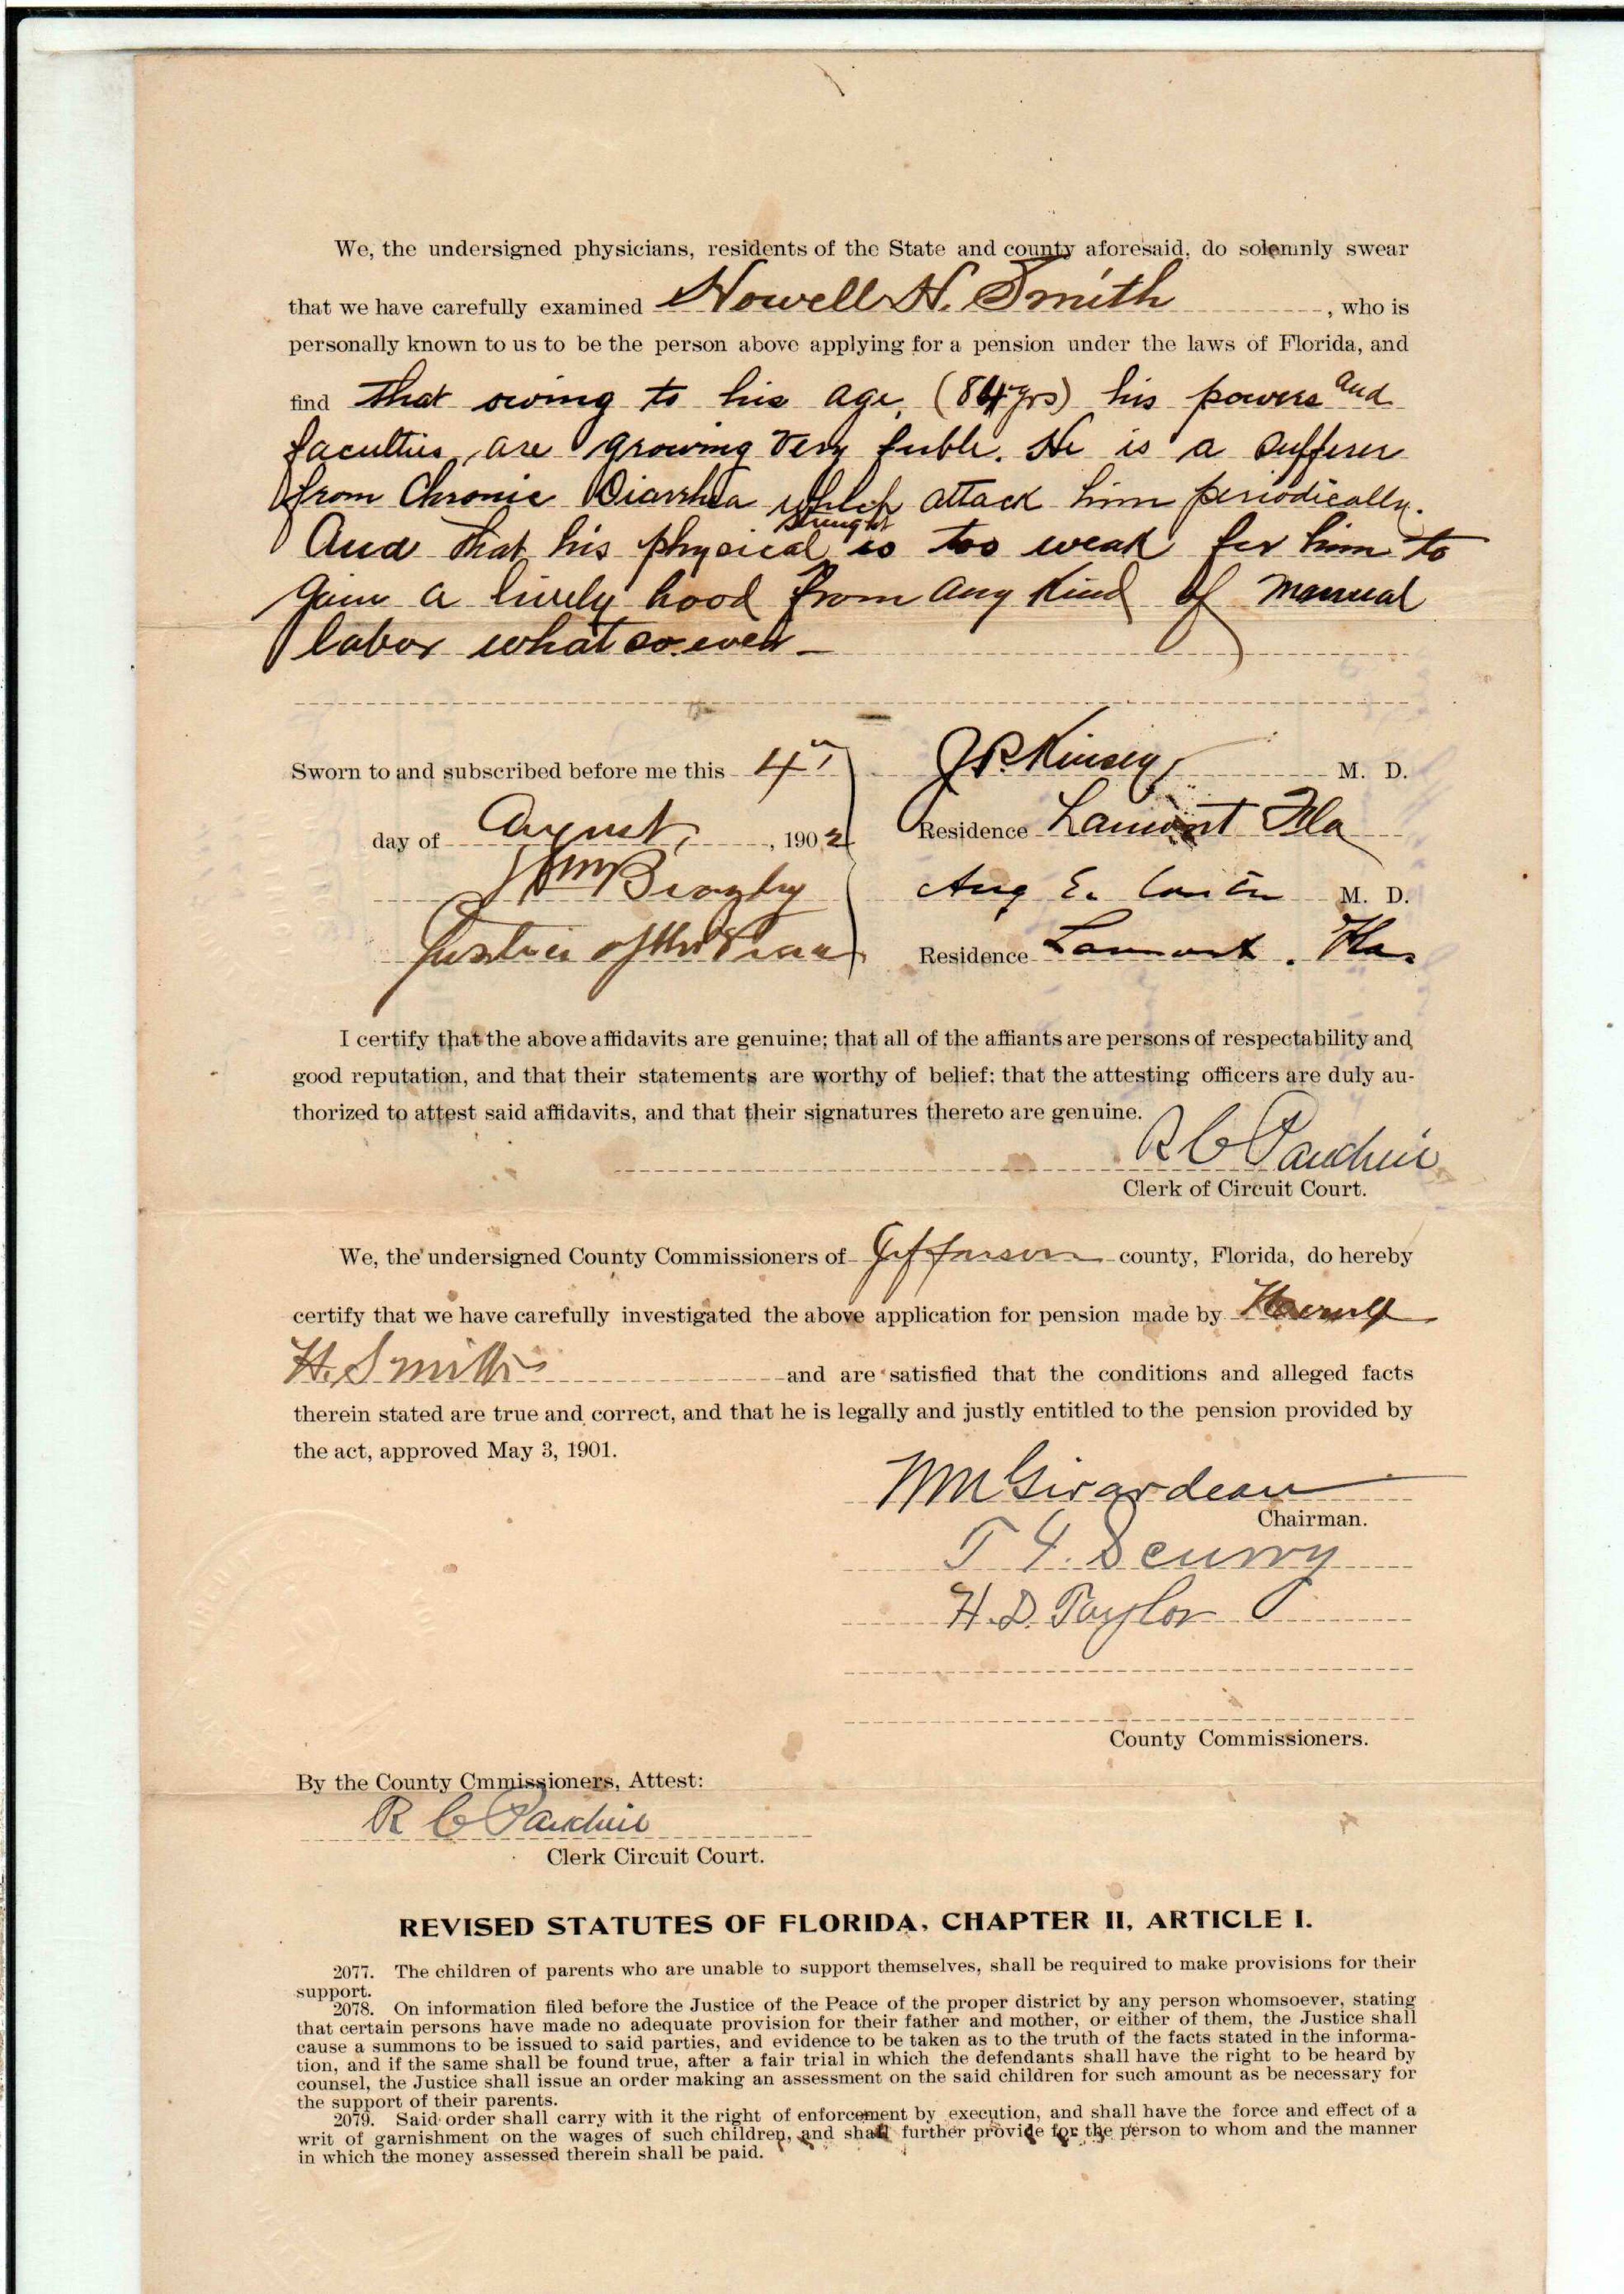 We, the undersigned physicians, residents of the State and county aforesaid, do solemnly swear
that we have carefully examined Howell H. Smith, who is
personally known to us to be the person above applying for a pension under the laws of Florida, and
find that owing to his age, (84yrs) his powers and
faculties, are growing very feeble. He is a sufferer
from Chronic Diarrhea which attack him periodically.
And that his physical strenght is too weak for him to
gain a lively hood from any kind of manual
labor what so ever
Sworn to and subscribed before me this 4th
J P Kinsey M. D.
day of August, 1902
Residence Lamont Fla
Aug E. M. D.
Justice of the Peace
Residence Lamont. Fla.
I certify that the above affidavits are genuine; that all of the affiants are persons of respectability and
good reputation, and that their statements are worthy of belief; that the attesting officers are duly au-
thorized to attest said affidavits, and that their signatures thereto are genuine.
R C
Clerk of Circuit Court.
We, the undersigned County Commissioners of Jefferson county, Florida, do hereby
certify that we have carefully investigated the above application for pension made by Howell
H. Smith and are satisfied that the conditions and alleged facts
therein stated are true and correct, and that he is legally and justly entitled to the pension provided by
the act, approved May 3, 1901.
Wm Girardeau
Chairman.
Scurry
H. D. Taylor
County Commissioners.
By the County Cmmissioners, Attest:
R C
Clerk Circuit Court.
REVISED STATUTES OF FLORIDA, CHAPTER II, ARTICLE I.
2077. The children of parents who are unable to support themselves, shall be required to make provisions for their
support.
2078. On information filed before the Justice of the Peace of the proper district by any person whomsoever, stating
that certain persons have made no adequate provision for their father and mother, or either of them, the Justice shall
cause a summons to be issued to said parties, and evidence to be taken as to the truth of the facts stated in the informa-
tion, and if the same shall be found true, after a fair trial in which the defendants shall have the right to be heard by
counsel, the Justice shall issue an order making an assessment on the said children for such amount as be necessary for
the support of their parents.
2079. Said order shall carry with it the right of enforcement by execution, and shall have the force and effect of a
writ of garnishment on the wages of such children, and shall further provide for the person to whom and the manner
in which the money assessed therein shall be paid.